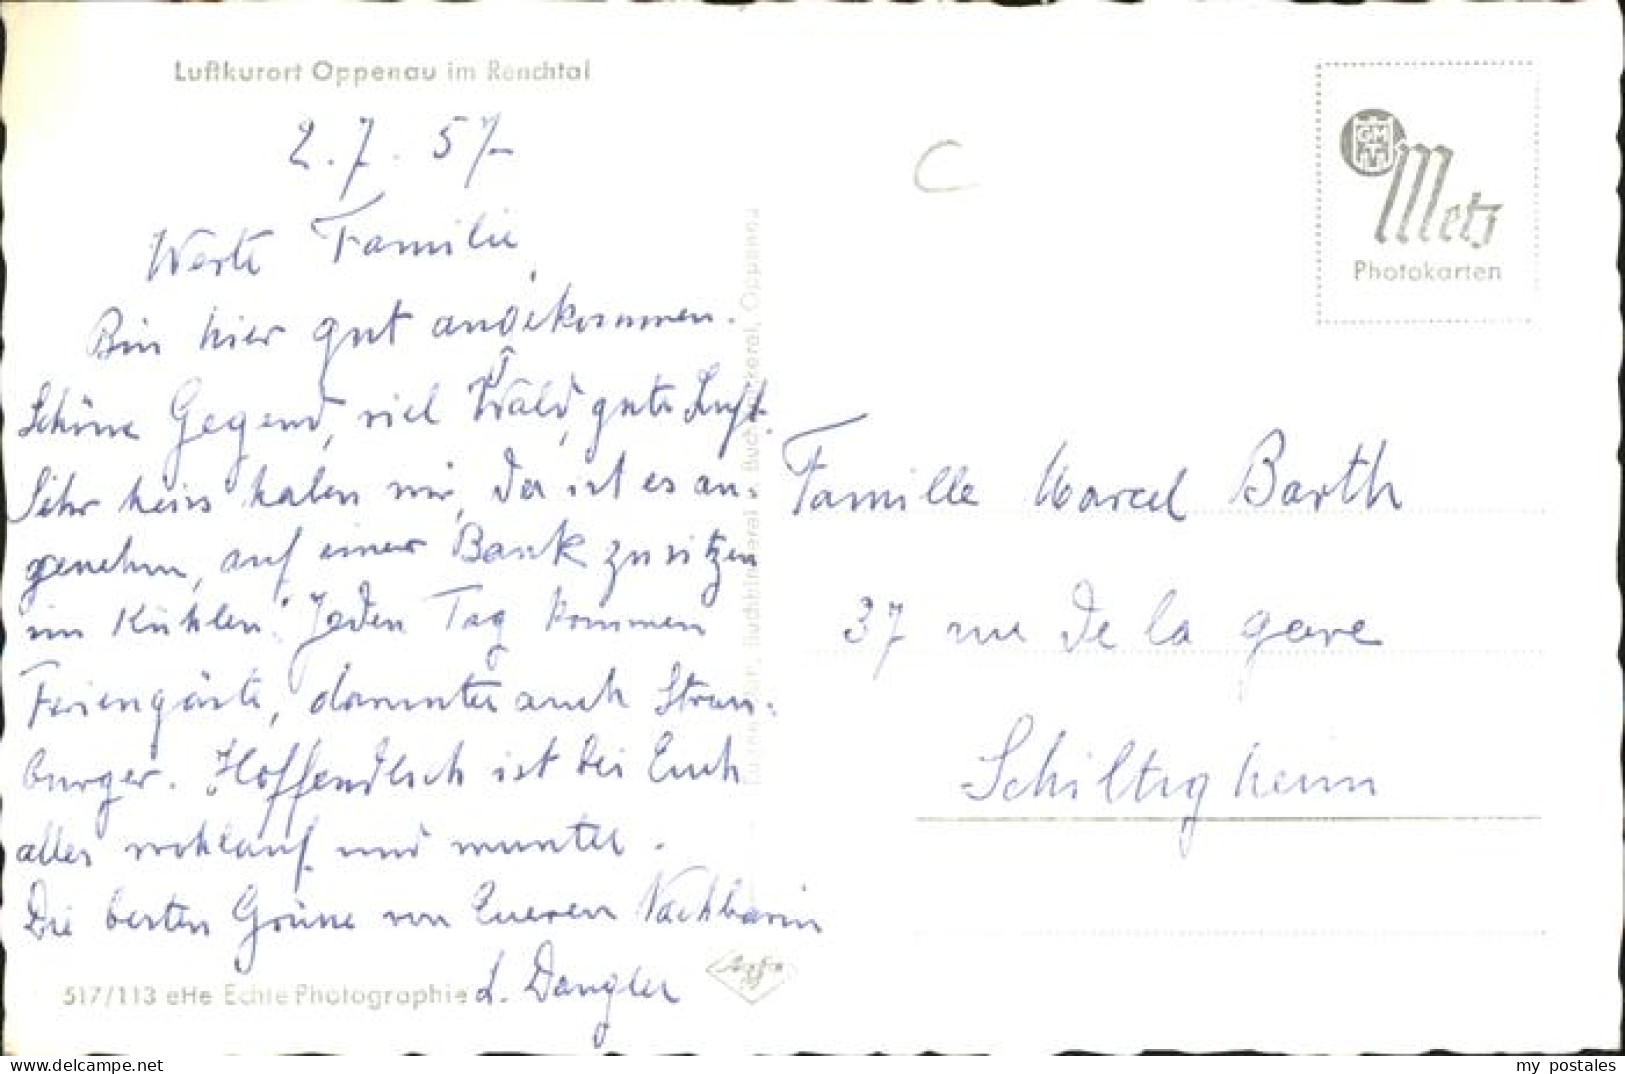 Luftkurort Oppenau im Renchtal
2.7.57
Werte Familie,
Bin hier gut angekommen.
Schöne Gegend, viel Wald, gute Luft.
Sehr heiss haben wir, da ist es an-
genehm, auf einer Bank zu sitzen
im Kühlen. Jeden Tag kommen
Feriengäste, darunter auch Strass-
burger. Hoffendlich ist bei Euch
alles wohlauf und munter.
Die besten Grüsse von Eueren Nachbarin
L. Dangler
517/113 eHe Echte Photographie
Agfa
Buchbinderei u. Buchdruckerei, Oppenau
C
GM
Metz
Photokarten
Famille Marcel Barth
37 rue de la gare
Schiltigheim
my postales
https://www.delcampe.net